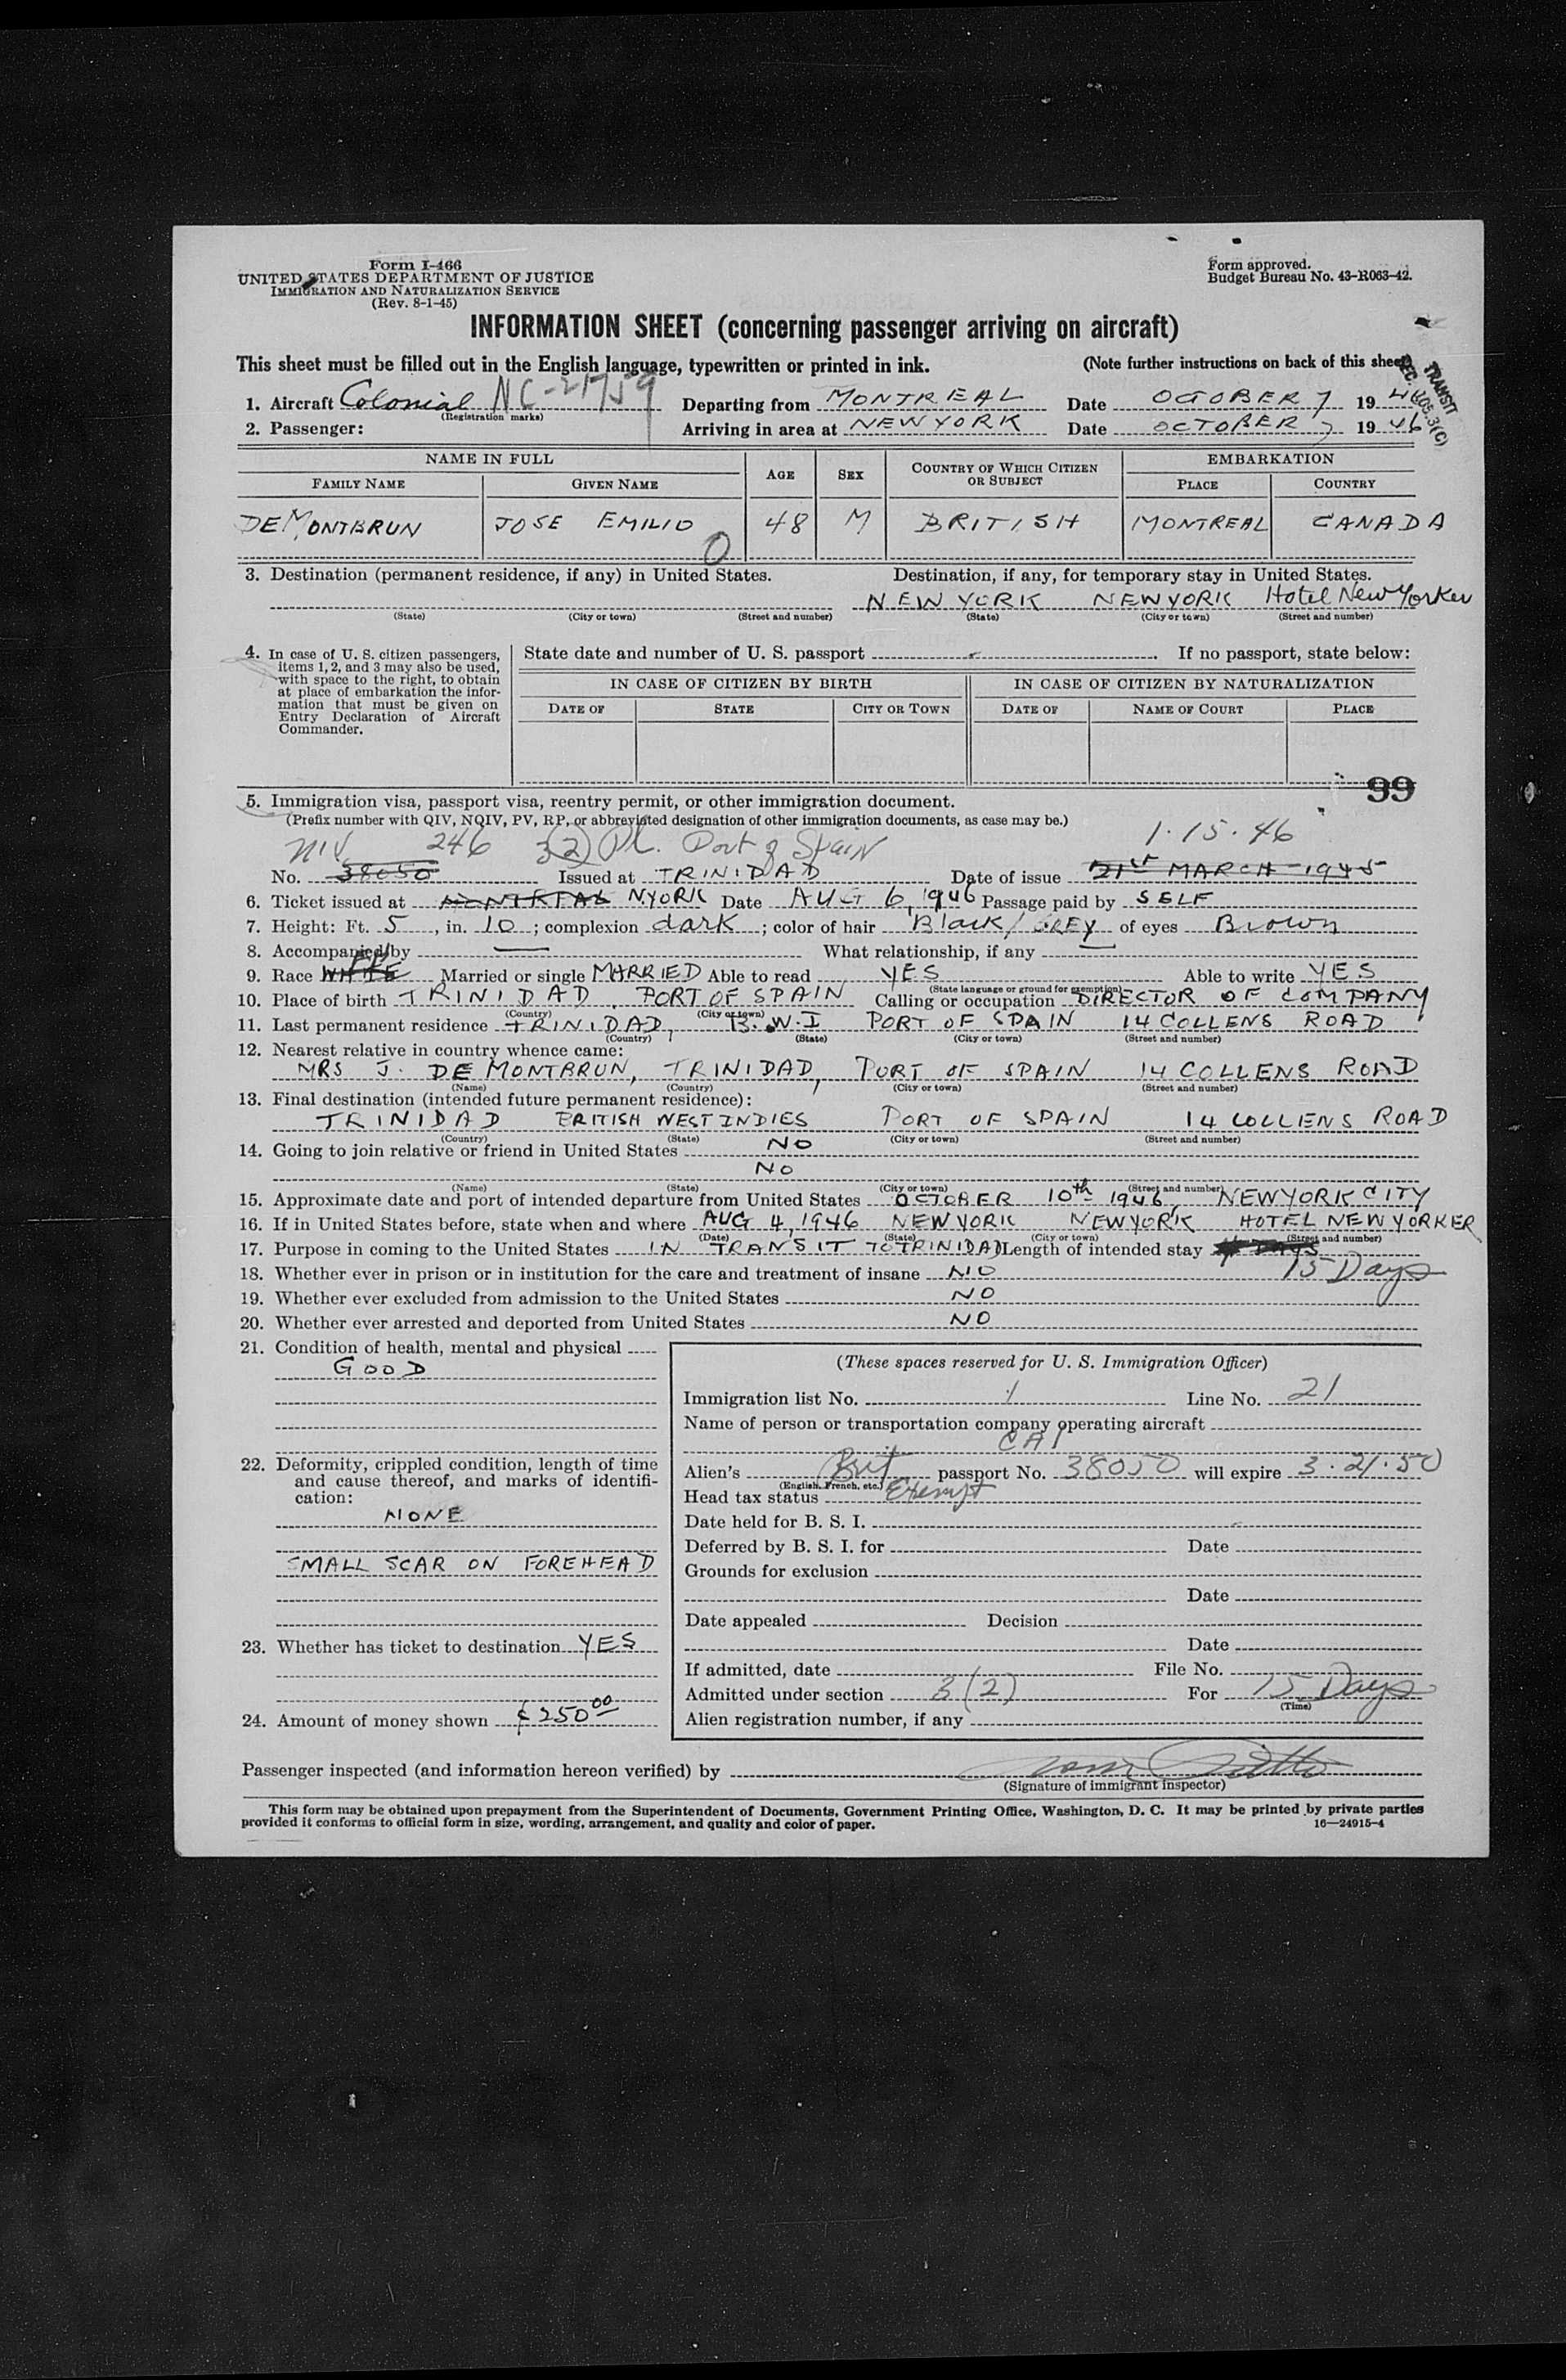 Form I-466
UNITED STATES DEPARTMENT OF JUSTICE
IMMIGRATION AND NATURALIZATION SERVICE
(Rev. 8-1-45)
Form approved.
Budget Bureau No. 43-R063-42.
INFORMATION SHEET (concerning passenger arriving on aircraft)
This sheet must be filled out in the English language, typewritten or printed in ink. (Note further instructions on back of this sheet)
TRANSIT
SEC. 3(C)
1. Aircraft Colonial NC-21759 Departing from MONTREAL Date OCTOBER 7 1946
(Registration marks)
2. Passenger: Arriving in area at NEW YORK Date OCTOBER 7 1946
NAME IN FULL AGE SEX COUNTRY OF WHICH CITIZEN OR SUBJECT EMBARKATION
FAMILY NAME GIVEN NAME PLACE COUNTRY
DE MONTBRUN JOSE EMILIO 48 M BRITISH MONTREAL CANADA
0
3. Destination (permanent residence, if any) in United States. Destination, if any, for temporary stay in United States.
NEW YORK NEW YORK Hotel New Yorker
(State) (City or town) (Street and number) (State) (City or town) (Street and number)
4. In case of U. S. citizen passengers, items 1, 2, and 3 may also be used, with space to the right, to obtain at place of embarkation the information that must be given on Entry Declaration of Aircraft Commander.
State date and number of U. S. passport If no passport, state below:
IN CASE OF CITIZEN BY BIRTH IN CASE OF CITIZEN BY NATURALIZATION
DATE OF STATE CITY OR TOWN DATE OF NAME OF COURT PLACE
99
5. Immigration visa, passport visa, reentry permit, or other immigration document.
(Prefix number with QIV, NQIV, PV, RP, or abbreviated designation of other immigration documents, as case may be.)
NIV 246 3(2) Pl. Port of Spain 1·15·46
No. 38050 Issued at TRINIDAD Date of issue 21st MARCH 1945
6. Ticket issued at MONTREAL N.YORK Date AUG 6, 1946 Passage paid by SELF
7. Height: Ft. 5, in. 10; complexion dark; color of hair Black/GREY of eyes Brown
8. Accompanied by — What relationship, if any —
9. Race WHITE Married or single MARRIED Able to read YES Able to write YES
(State language or ground for exemption)
10. Place of birth TRINIDAD, PORT OF SPAIN Calling or occupation DIRECTOR OF COMPANY
(Country) (City or town)
11. Last permanent residence TRINIDAD, B.W.I PORT OF SPAIN 14 COLLENS ROAD
(Country) (State) (City or town) (Street and number)
12. Nearest relative in country whence came:
MRS J. DE MONTBRUN, TRINIDAD, PORT OF SPAIN 14 COLLENS ROAD
(Name) (Country) (City or town) (Street and number)
13. Final destination (intended future permanent residence):
TRINIDAD BRITISH WEST INDIES PORT OF SPAIN 14 COLLENS ROAD
(Country) (State) (City or town) (Street and number)
14. Going to join relative or friend in United States NO
NO
(Name) (State) (City or town) (Street and number)
15. Approximate date and port of intended departure from United States OCTOBER 10th 1946, NEW YORK CITY
16. If in United States before, state when and where AUG 4, 1946 NEW YORK NEW YORK HOTEL NEW YORKER
(Date) (State) (City or town) (Street and number)
17. Purpose in coming to the United States IN TRANSIT TO TRINIDAD Length of intended stay DAYS
15 Days
18. Whether ever in prison or in institution for the care and treatment of insane NO
19. Whether ever excluded from admission to the United States NO
20. Whether ever arrested and deported from United States NO
21. Condition of health, mental and physical
GOOD
22. Deformity, crippled condition, length of time and cause thereof, and marks of identification:
NONE
SMALL SCAR ON FOREHEAD
23. Whether has ticket to destination YES
24. Amount of money shown $250.00
(These spaces reserved for U. S. Immigration Officer)
Immigration list No. 1 Line No. 21
Name of person or transportation company operating aircraft
CAI
Alien's Brit passport No. 38050 will expire 3·21·50
(English, French, etc.)
Head tax status Exempt
Date held for B. S. I.
Deferred by B. S. I. for Date
Grounds for exclusion
Date
Date appealed Decision
Date
If admitted, date File No.
Admitted under section 3(2) For 15 Days
(Time)
Alien registration number, if any
Passenger inspected (and information hereon verified) by
(Signature of immigrant inspector)
This form may be obtained upon prepayment from the Superintendent of Documents, Government Printing Office, Washington, D. C. It may be printed by private parties
provided it conforms to official form in size, wording, arrangement, and quality and color of paper. 16—24915-4